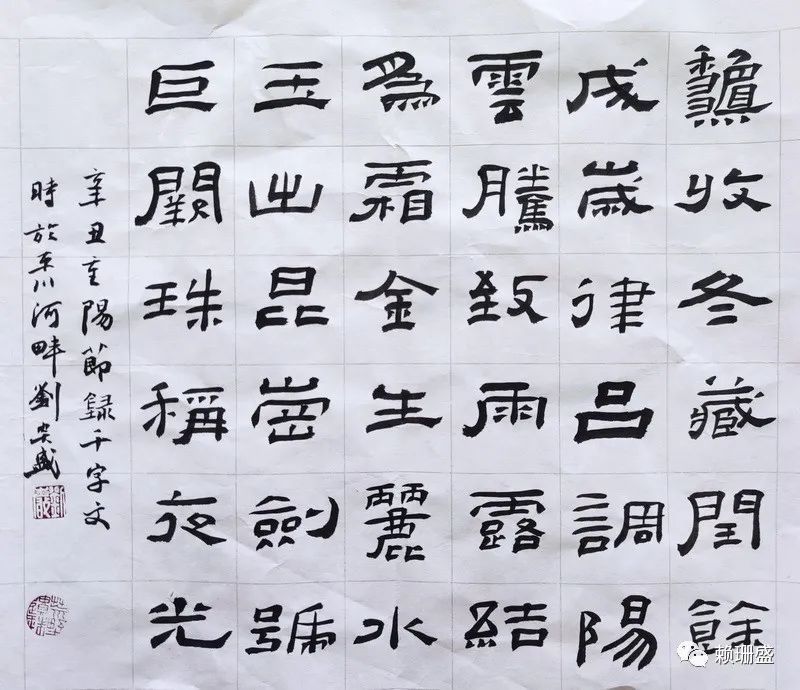 龝收冬藏閏餘
成歲律呂調陽
雲騰致雨露結
爲霜金生麗水
玉出昆崗劍號
巨闕珠稱夜光
辛丑重陽節錄千字文
時於川河畔劉盛
赖珊盛